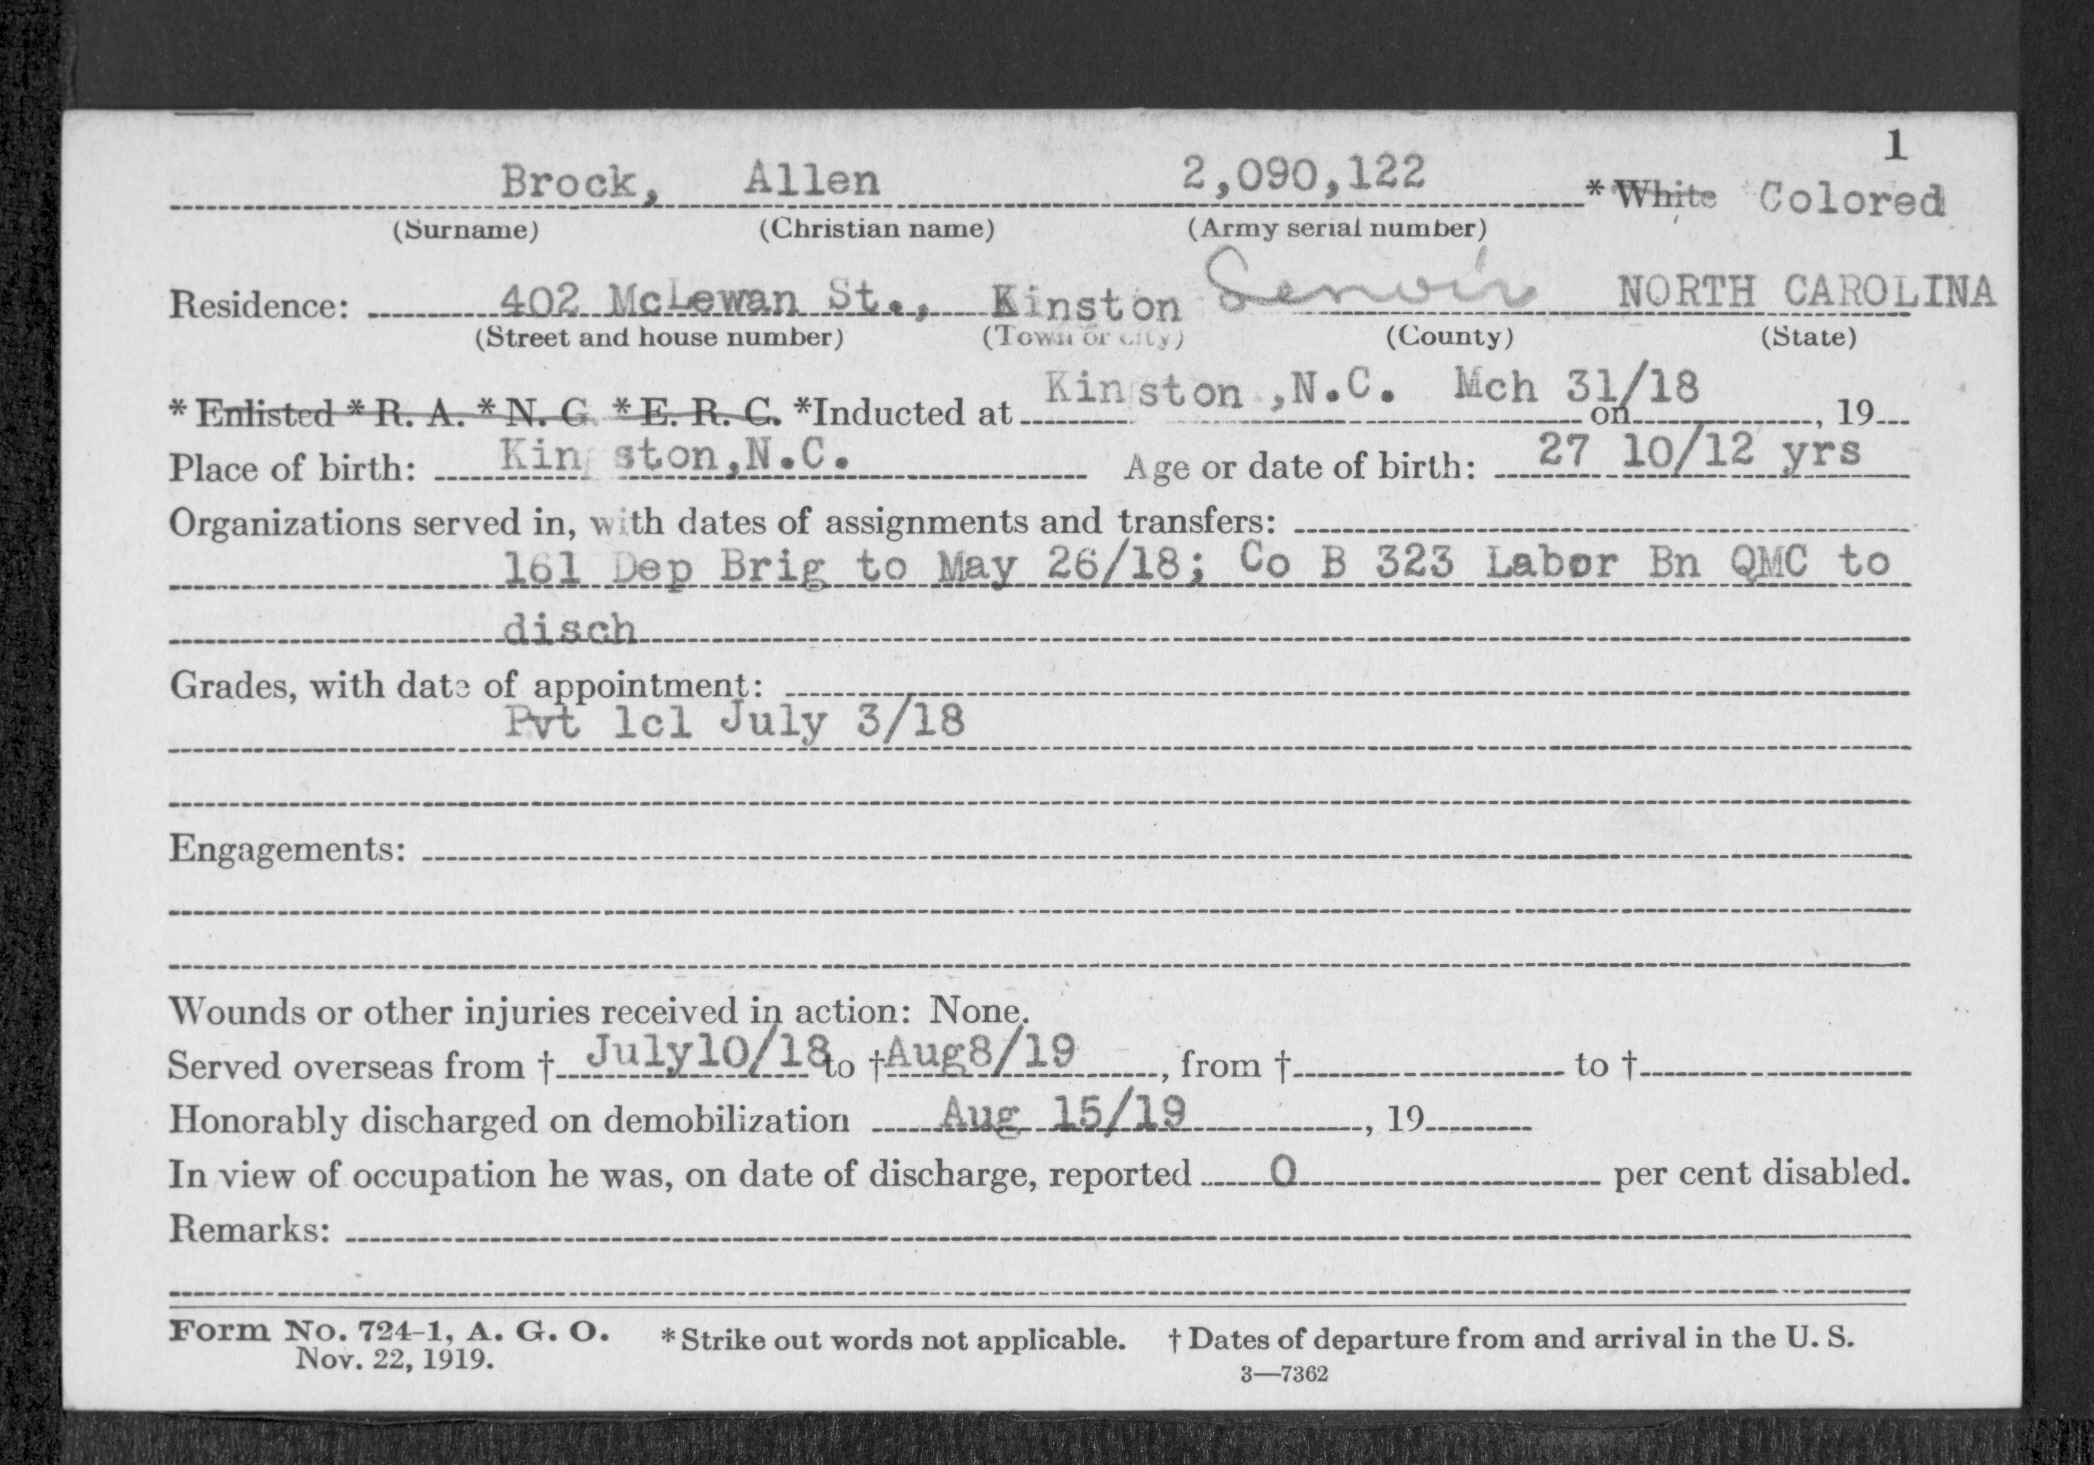 1
Brock, Allen 2,090,122 * White Colored
(Surname) (Christian name) (Army serial number)
Residence: 402 McLewan St., Kinston Lenoir NORTH CAROLINA
(Street and house number) (Town or city) (County) (State)
* Enlisted * R. A. * N. G. * E. R. C. *Inducted at Kinston, N.C. on Mch 31/18, 19
Place of birth: Kinston, N.C. Age or date of birth: 27 10/12 yrs
Organizations served in, with dates of assignments and transfers:
161 Dep Brig to May 26/18; Co B 323 Labor Bn QMC to
disch
Grades, with date of appointment:
Pvt 1cl July 3/18
Engagements:
Wounds or other injuries received in action: None.
Served overseas from † July10/18 to † Aug8/19, from † to †
Honorably discharged on demobilization Aug 15/19, 19
In view of occupation he was, on date of discharge, reported 0 per cent disabled.
Remarks:
Form No. 724-1, A. G. O. * Strike out words not applicable. † Dates of departure from and arrival in the U. S.
Nov. 22, 1919. 3—7362